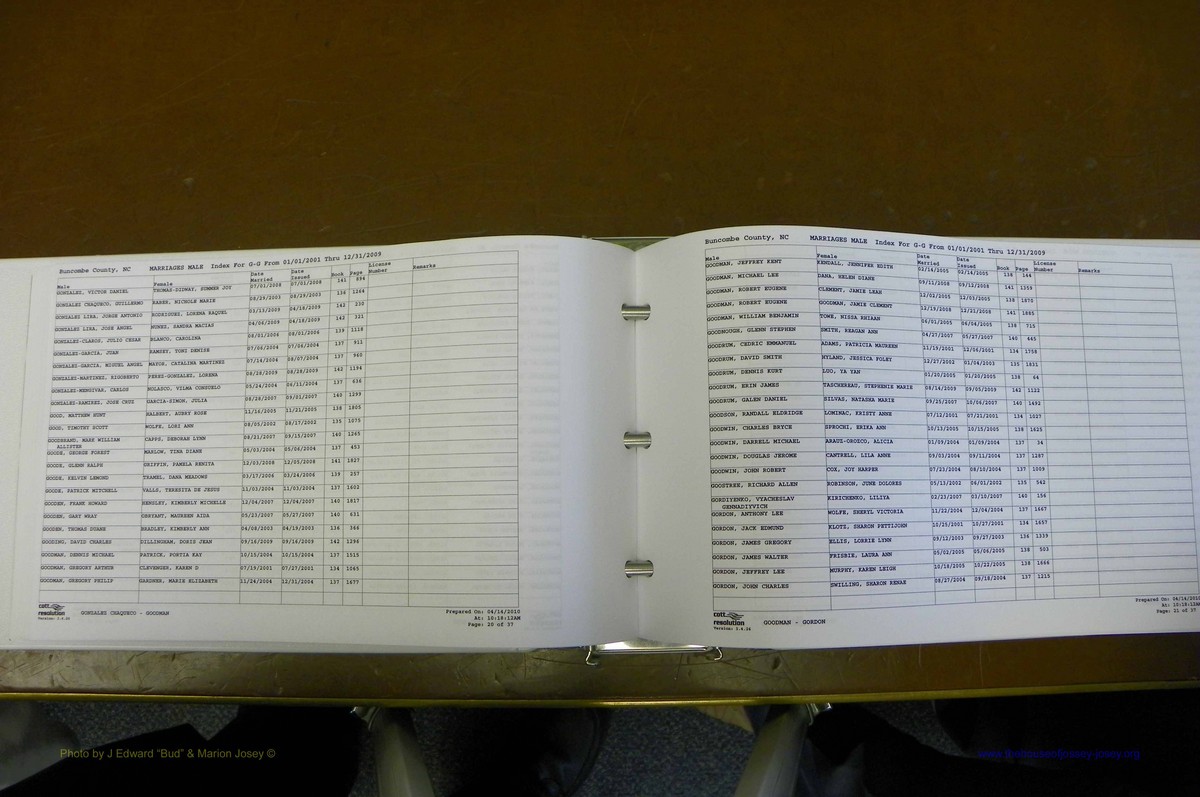 Buncombe County, NC MARRIAGES MALE Index For G-G From 01/01/2001 Thru 12/31/2009
Male Female Date Married Date Issued Book Page License Number Remarks
GONZALEZ, VICTOR DANIEL 07/01/2008 07/01/2008 141 894
GONZALEZ CHAQUECO, GUILLERMO RABER, NICHOLE MARIE 08/29/2003 08/29/2003 136 1264
GONZALEZ LIRA, JORGE ANTONIO RODRIGUEZ, LORENA RAQUEL 03/13/2009 04/18/2009 142 230
GONZALEZ LIRA, JOSE ANGEL NUNEZ, SANDRA MACIAS 04/06/2009 04/18/2009 142 321
GONZALEZ-CLAROS, JULIO CESAR BLANCO, CAROLINA 08/01/2006 08/01/2006 139 1118
GONZALEZ-GARCIA, JUAN RAMSEY, TONI DENISE 07/06/2004 07/06/2004 137 911
GONZALEZ-GARCIA, MIGUEL ANGEL MAYOR, CATALINA MARTINEZ 07/14/2004 08/07/2004 137 960
GONZALEZ-MARTINEZ, RIGOBERTO PEREZ-GONZALES, LORENA 08/28/2009 08/28/2009 142 1194
GONZALEZ-MENGIVAR, CARLOS NOLASCO, VILMA CONSUELO 05/24/2004 06/11/2004 137 636
GONZALEZ-RAMIREZ, JOSE CRUZ GARCIA-SIMON, JULIA 08/28/2007 09/01/2007 140 1299
GOOD, MATTHEW HUNT HALBERT, AUBRY ROSE 11/16/2005 11/21/2005 138 1805
GOOD, TIMOTHY SCOTT WOLFE, LORI ANN 08/05/2002 08/17/2002 135 1075
GOODBRAND, MARK WILLIAM ALLISTER CAPPS, DEBORAH LYNN 08/21/2007 09/15/2007 140 1265
GOODE, GEORGE FOREST MARLOW, TINA DIANE 05/03/2004 05/06/2004 137 453
GOODE, GLENN RALPH GRIFFIN, PAMELA RENITA 12/03/2008 12/05/2008 141 1827
GOODE, KELVIN LEMOND TRAMEL, DANA MEADOWS 03/17/2006 03/24/2006 139 257
GOODE, PATRICK MITCHELL VALLS, TEREZITA DE JESUS 11/03/2004 11/03/2004 137 1602
GOODEN, FRANK HOWARD HENSLEY, KIMBERLY MICHELLE 12/04/2007 12/04/2007 140 1817
GOODEN, GARY WRAY OBRYANT, MAUREEN AIDA 05/23/2007 05/27/2007 140 631
GOODEN, THOMAS DUANE BRADLEY, KIMBERLY ANN 04/08/2003 04/19/2003 136 366
GOODING, DAVID CHARLES DILLINGHAM, DORIS JEAN 09/16/2009 09/16/2009 142 1296
GOODMAN, DENNIS MICHAEL PATRICK, PORTIA KAY 10/15/2004 10/15/2004 137 1515
GOODMAN, GREGORY ARTHUR CLEVENGER, KAREN D 07/19/2001 07/21/2001 134 1065
GOODMAN, GREGORY PHILIP GARDNER, MARIE ELIZABETH 11/24/2004 12/31/2004 137 1677
cott resolution
Version: 1.4.28
GONZALEZ CHAQUECO - GOODMAN
Prepared On: 04/14/2010
At: 10:18:12AM
Page: 20 of 37
Buncombe County, NC MARRIAGES MALE Index For G-G From 01/01/2001 Thru 12/31/2009
Male Female Date Married Date Issued Book Page License Number Remarks
GOODMAN, JEFFREY KENT KENDALL, JENNIFER EDITH 02/14/2005 02/14/2005 138 144
GOODMAN, MICHAEL LEE DANA, HELEN DIANE 09/11/2008 09/13/2008 141 1359
GOODMAN, ROBERT EUGENE CLEMENT, JAMIE LEAH 12/02/2005 12/03/2005 138 1875
GOODMAN, ROBERT EUGENE GOODMAN, JAMIE CLEMENT 12/19/2008 12/21/2008 141 1885
GOODMAN, WILLIAM BENJAMIN TOWE, NISSA RHIAAN 06/01/2005 06/04/2005 138 715
GOODNOUGH, GLENN STEPHEN SMITH, REAGAN ANN 04/27/2007 05/27/2007 140 445
GOODRUM, CEDRIC EMMANUEL ADAMS, PATRICIA MAUREEN 11/19/2001 12/08/2001 134 1758
GOODRUM, DAVID SMITH HYLAND, JESSICA FOLEY 12/27/2002 01/04/2003 135 1831
GOODRUM, DENNIS KURT LUO, YA YAN 01/20/2005 01/20/2005 138 64
GOODRUM, ERIN JAMES TASCHEREAU, STEPHENIE MARIE 08/14/2009 09/05/2009 142 1122
GOODRUM, GALEN DANIEL SILVAS, NATASHA MARIE 09/25/2007 10/06/2007 140 1492
GOODSON, RANDALL ELDRIDGE LOMINAC, KRISTY ANNE 07/12/2001 07/21/2001 134 1027
GOODWIN, CHARLES BRYCE SPROCHI, ERIKA ANN 10/13/2005 10/15/2005 138 1625
GOODWIN, DARRELL MICHAEL ARAUZ-OROZCO, ALICIA 01/09/2004 01/09/2004 137 34
GOODWIN, DOUGLAS JEROME CANTRELL, LILA ANNE 09/03/2004 09/11/2004 137 1287
GOODWIN, JOHN ROBERT COX, JOY HARPER 07/23/2004 08/10/2004 137 1009
GOOSTREE, RICHARD ALLEN ROBINSON, JUNE DOLORES 05/13/2002 06/01/2002 135 542
GORDIYENKO, VYACHESLAV GENNADIYVICH KIRICHENKO, LILIYA 02/23/2007 03/10/2007 140 156
GORDON, ANTHONY LEE WOLFE, SHERYL VICTORIA 11/22/2004 12/04/2004 137 1667
GORDON, JACK EDMUND KLOTZ, SHARON PETTIJOHN 10/25/2001 10/27/2001 134 1657
GORDON, JAMES GREGORY ELLIS, LORRIE LYNN 09/12/2003 09/27/2003 136 1339
GORDON, JAMES WALTER FRISBIE, LAURA ANN 05/02/2005 05/06/2005 138 503
GORDON, JEFFREY LEE MURPHY, KAREN LEIGH 10/18/2005 10/22/2005 138 1666
GORDON, JOHN CHARLES SWILLING, SHARON RENAE 08/27/2004 09/18/2004 137 1215
cott resolution
Version: 1.4.28
GOODMAN - GORDON
Prepared On: 04/14/2010
At: 10:18:12AM
Page: 21 of 37
Photo by J Edward "Bud" & Marion Josey ©
www.thehouseofjossey-josey.org